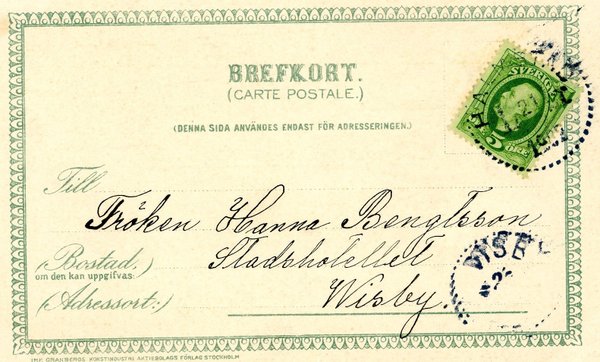 BREFKORT.
(CARTE POSTALE.)
(DENNA SIDA ANVÄNDES ENDAST FÖR ADRESSERINGEN.)
SVERIGE
5 ÖRE
Till
Fröken Hanna Bengtsson
(Bostad, Stadshotellet
om den kan uppgifvas:)
(Adressort:) Wisby.
VISBY
IMP. GRANBERGS KONSTINDUSTRI AKTIEBOLAGS FÖRLAG STOCKHOLM